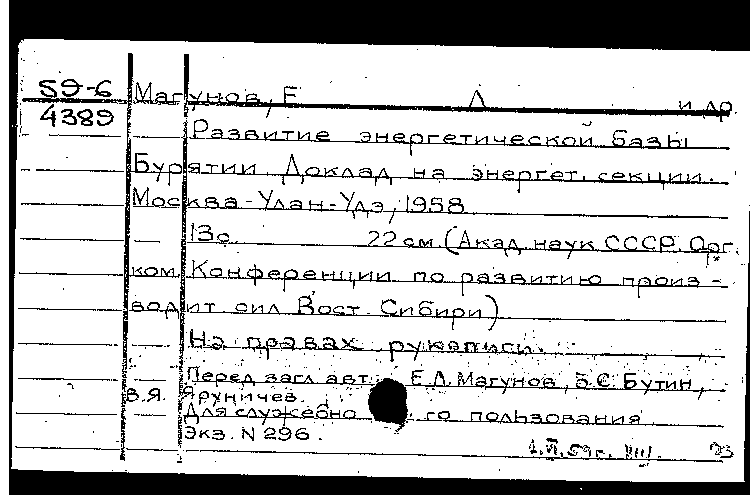 59-6 Магунов, Е Л и др.
4389 Развитие энергетической базы
Бурятии. Доклад на энергет. секции.
Москва-Улан-Удэ, 1958
13с. 22 см. (Акад. наук СССР. Орг.
ком. Конференции по развитию произ-
водит. сил Вост. Сибири)
На правах рукописи.
Перед загл. авт.: Е.Л. Магунов, Б.С. Бутин,
В.Я. Яруничев.
Для служебного пользования
Экз. N 296.